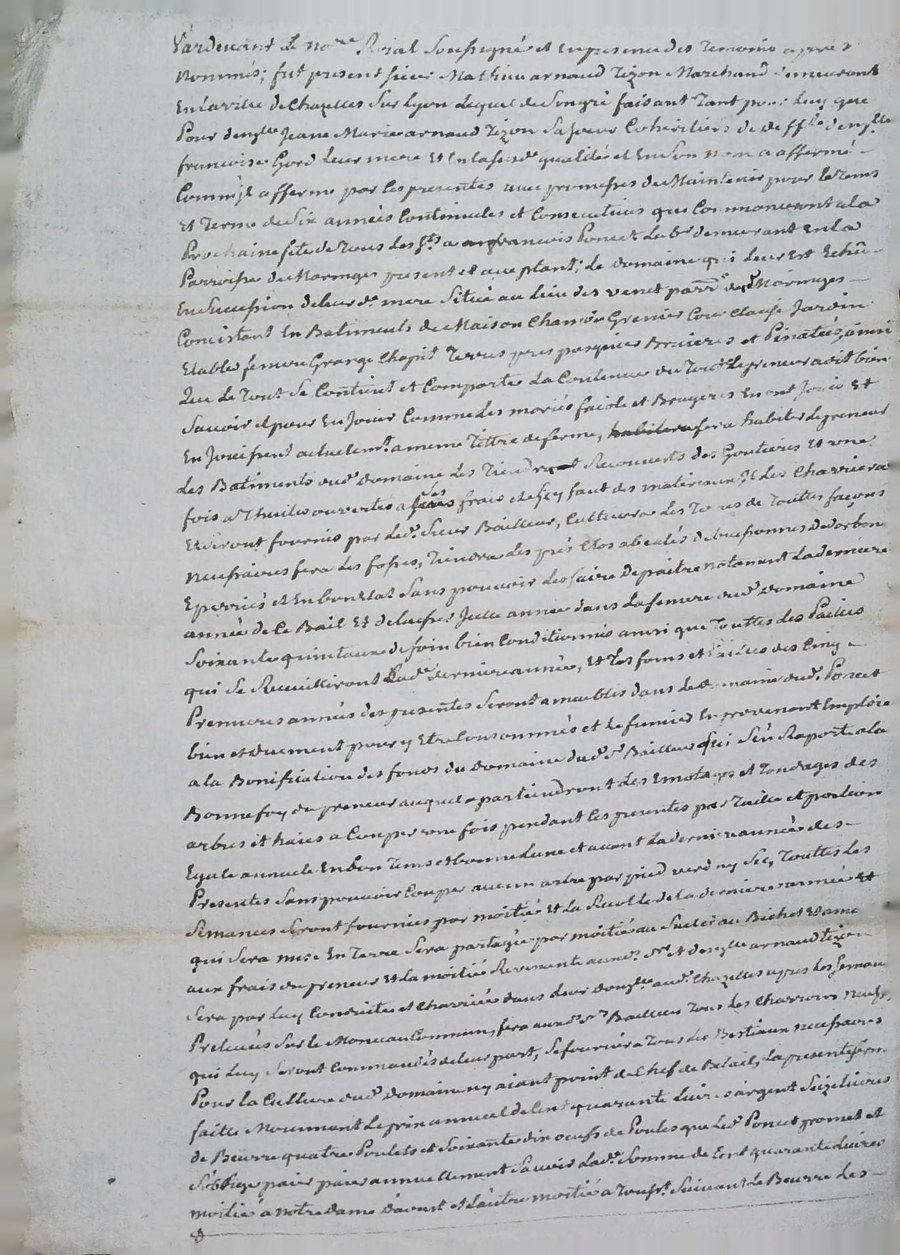 Pardevant le no.re Royal soussigné et en presence des temoins apprès
nommés; fut present sieur Mathieu arnaud Tizon Marchand demeurant
en la ville de Chazelles sur Lyon lequel de son gré faisant tant pour luy que
pour dem.lle Jeane Marie arnaud Tizon sa soeur Coheritiers de deff.te dem.lle
francoise Gord leur mere et en laditte qualité et en son nom a affermé
Comme il afferme par les presentes avec promesses de Maintenir pour le tems
et terme de six années Continuelles et Consecutives qui Commanceront a la
Prochaine fête de Tous les S.ts a francois Poncet lab.r demeurant en la
Parroisse de Maringes present et acceptant; le domaine qui leur est Echû
en succession de leur d.e mere Situé au lieu des venet parr.e de Maringes
Concistant En Batiments de Maison Chambre Grenier Cour Clause Jardin
Etable feniere Grange Chapit Terres pres pasquiers Bruieres et Pinatées, ainsi
Que le Tout se Contient et Comporte La Contenue du Tout le preneur a dit bien
Savoir et pour En Jouir Comme les mariés faiole et Brugeres En ont Joui et
En Jouissent actuelem.t a meme Tittre de ferme, sera habiter le preneur
les Batiments dud. Domaine les Tiendra Recouverts des Goutieres et une
fois a Thuiles ouvertes a ses frais et s'y faut des materiaux il les Charriera
Et seront fournis par led. Sieur Bailleur, Cultivera les Terres de Toutes façons
necessaires fera les fosses, Tiendra les prés Clos abealés debuissonnés
Eperriés et En bon etat Sans pouvoir les faire Depaitre notament la derniere
année de Ce Bail Et delaissera ditte année dans la feniere dud. Domaine
Soixante quintaux de foin bien Conditionnés ainsi que Touttes les Pailles
qui se Recueilliront lad.e derniere année, et les foins et Pailles des Cinq
Premieres années des presentes seront ameublis dans le domaine dud. Poncet
bien et duement pour y Etre Consommés et le fumier En provenant Employé
a la Bonification des fonds du Domaine dud. S.r Bailleur qui S'en Raporte a la
Bonne foy du preneur auquel apartiendront les Emotages et Tondages des
arbres et haies a Couper une fois pendant les presentes par Taille et portion
Egale annuele En bon Tems et bonne lune et avant la derniere année des
Presentes Sans pouvoir Couper aucun arbre par pied verd ny Sec, Touttes les
Semances Seront fournies par moitié et la Recolte de la derniere année et
qui Sera mise En Terre Sera partagée par moitié au au Bichet
aux frais du preneur Et la moitié Revenante auxd. S.r et dem.lle arnaud tizon
Sera par luy Conduite et Charriée dans leur audit Chazelles apres les Semances
Prelevées Sur le Monceau Commun, fera aud. S.r Bailleur Tous les Charrois
qui luy Seront Commandés de leur part, Se fournira Tous les Bestiaux necessaires
Pour la Culture dud. Domaine ny aiant point de Chef de Betail, La presente ferme
faitte Moienant le prix annuel de Cent quarante livres argent Seize livres
de Beurre quatre Poulets et Soixante dix oeufs de Poules que led. Poncet promet et
S'oblige paier annuellement Savoir lad. Somme de Cent quarante Livres
moitié a notre dame d'aoust et l'autre moitié a Suivant le Beurre les